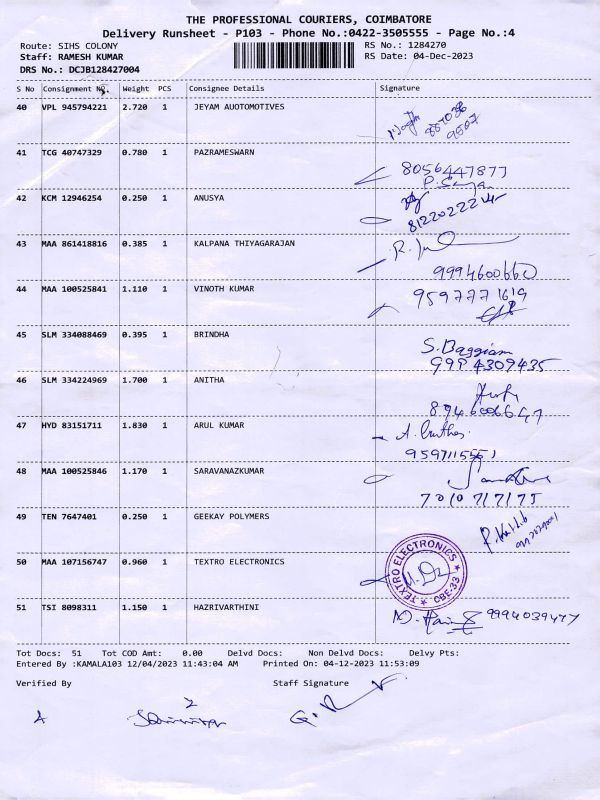 THE PROFESSIONAL COURIERS, COIMBATORE
Delivery Runsheet - P103 - Phone No.:0422-3505555 - Page No.:4
Route: SIHS COLONY RS No.: 1284270
Staff: RAMESH KUMAR RS Date: 04-Dec-2023
DRS No.: DCJB128427004
S No Consignment No. Weight PCS Consignee Details Signature
40 VPL 945794221 2.720 1 JEYAM AUOTOMOTIVES
41 TCG 40747329 0.780 1 PAZRAMESWARN
8056447877
42 KCM 12946254 0.250 1 ANUSYA
43 MAA 861418816 0.385 1 KALPANA THIYAGARAJAN
9994600660
44 MAA 100525841 1.110 1 VINOTH KUMAR
9597771619
45 SLM 334088469 0.395 1 BRINDHA
S. Baggiam
99P4309435
46 SLM 334224969 1.700 1 ANITHA
47 HYD 83151711 1.830 1 ARUL KUMAR
48 MAA 100525846 1.170 1 SARAVANAZKUMAR
7010717175
49 TEN 7647401 0.250 1 GEEKAY POLYMERS
50 MAA 107156747 0.960 1 TEXTRO ELECTRONICS
TEXTRO ELECTRONICS CBE-33
51 TSI 8098311 1.150 1 HAZRIVARTHINI
9994039477
Tot Docs: 51 Tot COD Amt: 0.00 Delvd Docs: Non Delvd Docs: Delvy Pts:
Entered By :KAMALA103 12/04/2023 11:43:04 AM Printed On: 04-12-2023 11:53:09
Verified By Staff Signature